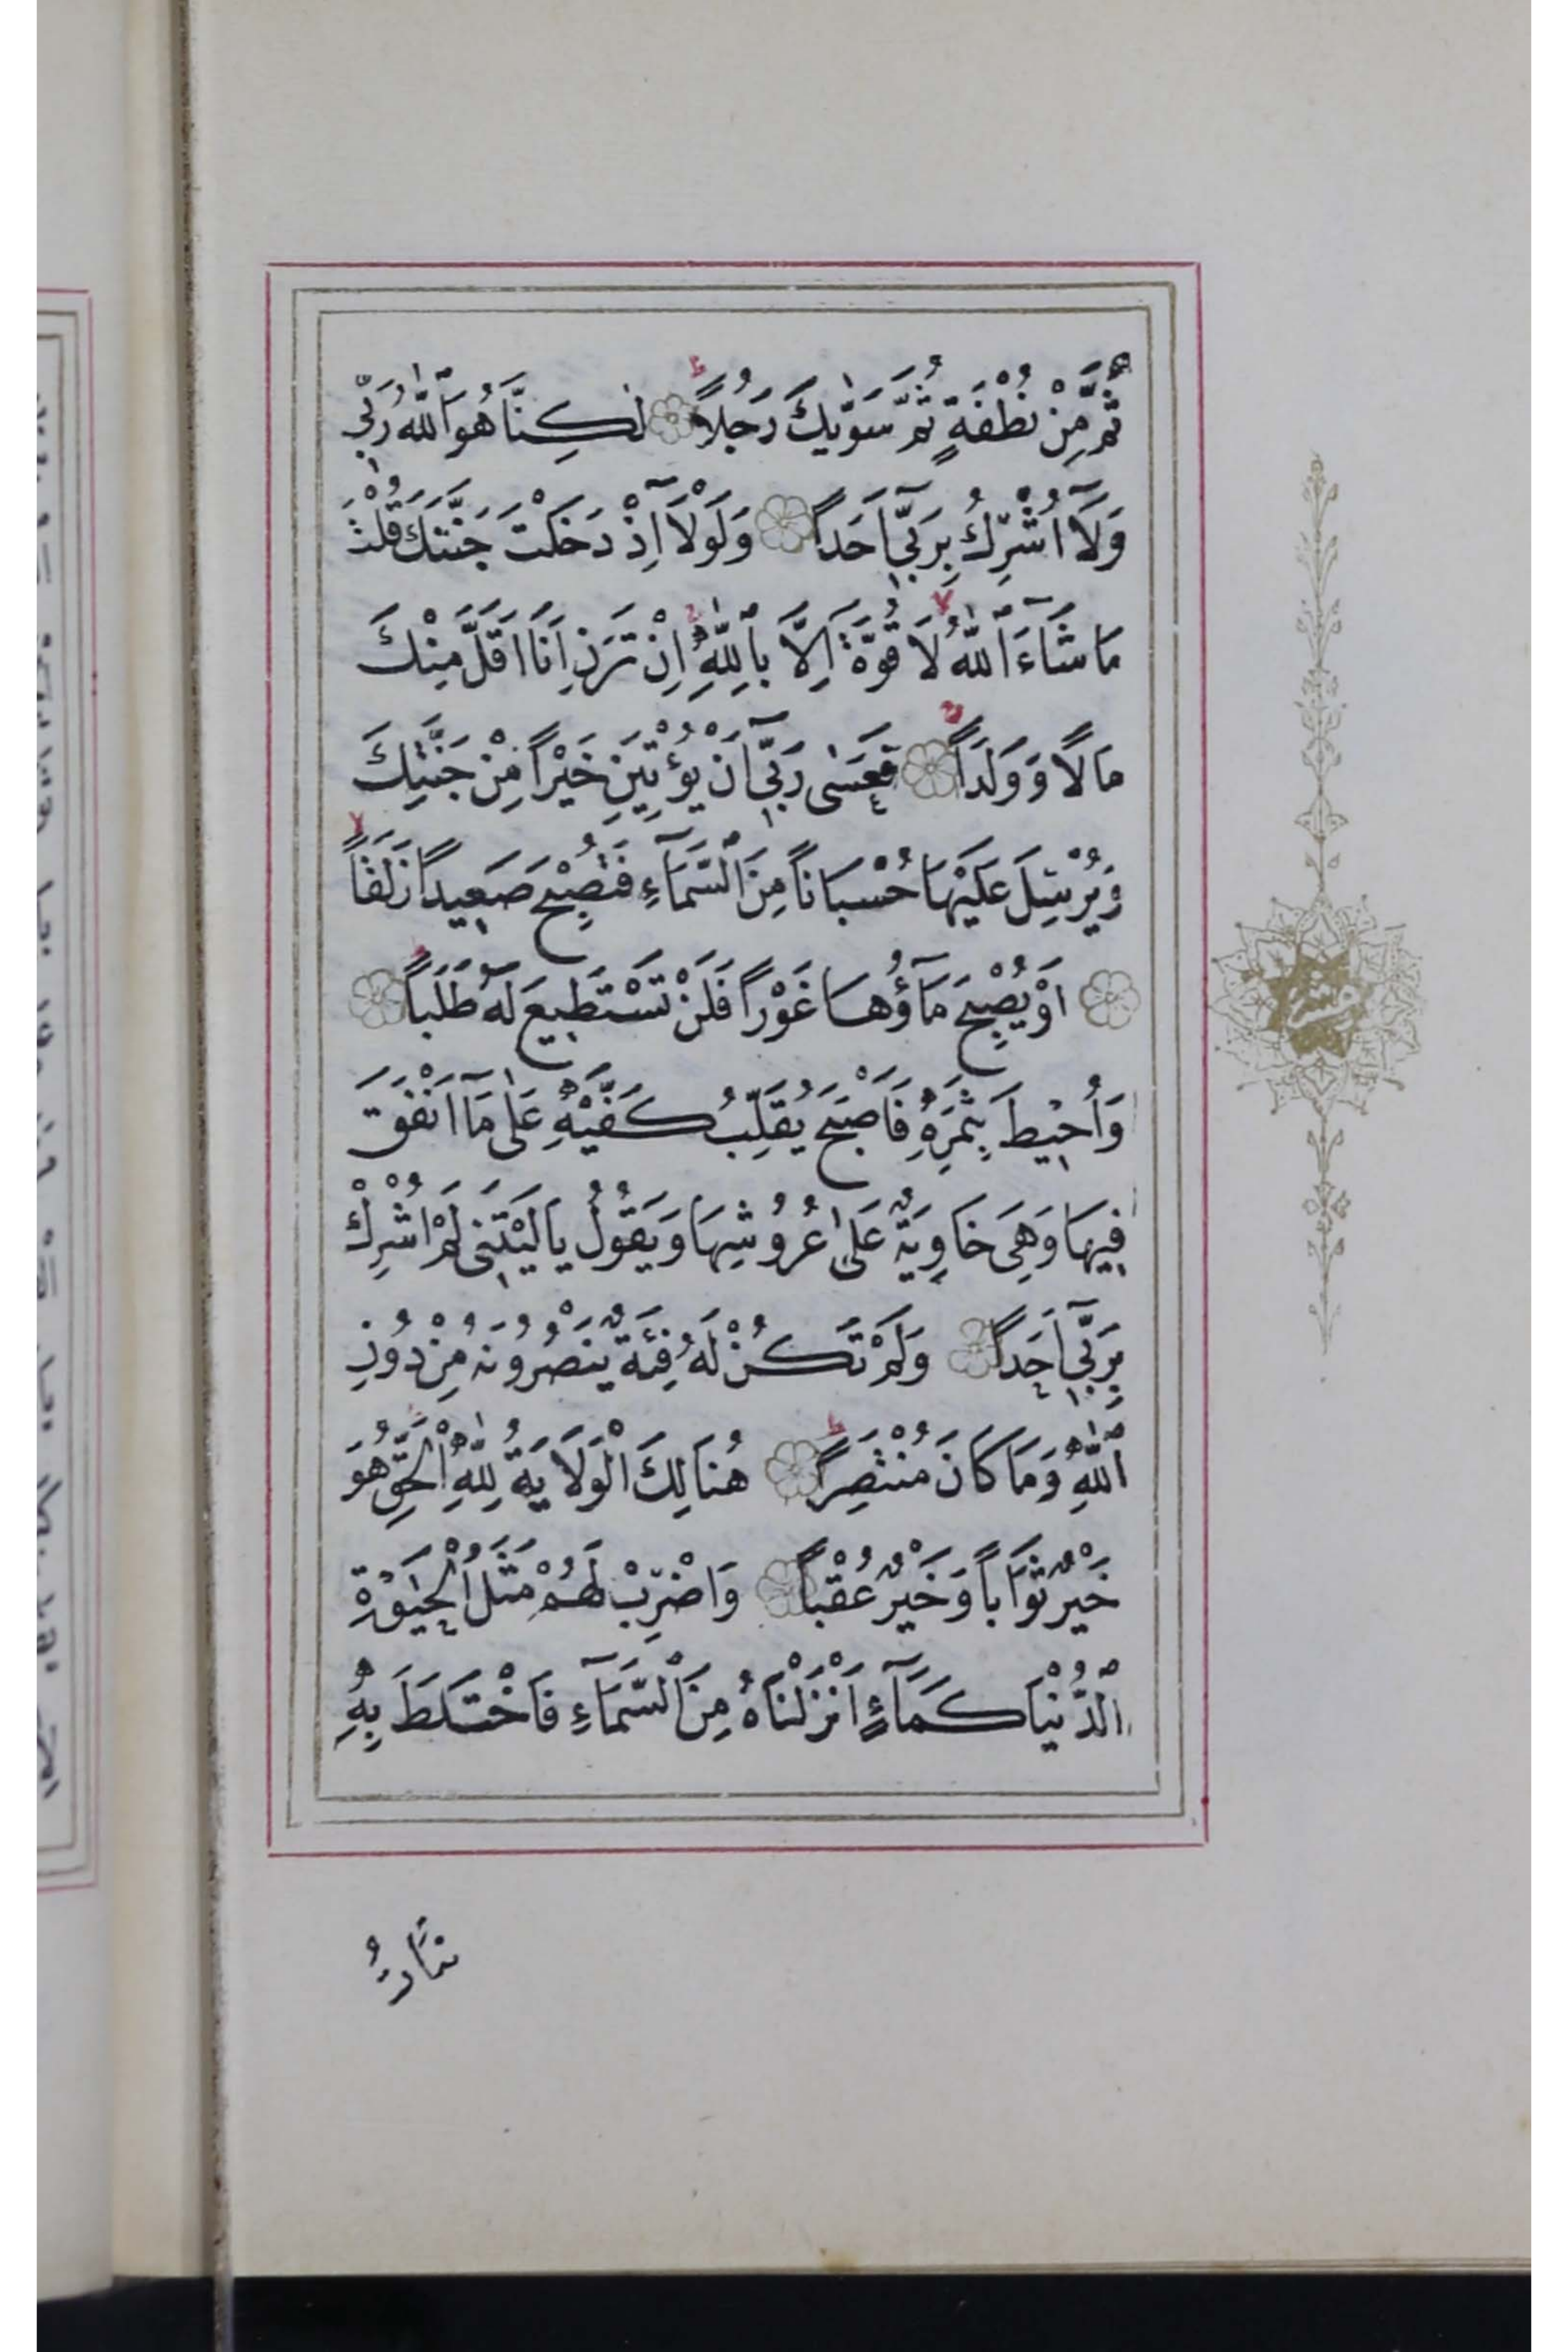 ثُمَّ مِنْ نُطْفَةٍ ثُمَّ سَوّٰيكَ رَجُلاً لٰكِنَّا هُوَ اللّٰهُ رَبّٖي
وَلَآ اُشْرِكُ بِرَبّٖيٓ اَحَداً وَلَوْلَآ اِذْ دَخَلْتَ جَنَّتَكَ قُلْتَ
مَا شَآءَ اللّٰهُ لَا قُوَّةَ اِلَّا بِاللّٰهِ اِنْ تَرَنِ اَنَا اَقَلَّ مِنْكَ
مَالًا وَوَلَداً فَعَسٰى رَبّٖيٓ اَنْ يُؤْتِيَنِ خَيْراً مِنْ جَنَّتِكَ
وَيُرْسِلَ عَلَيْهَا حُسْبَاناً مِنَ السَّمَآءِ فَتُصْبِحَ صَعٖيداً زَلَقاً
اَوْ يُصْبِحَ مَآؤُهَا غَوْراً فَلَنْ تَسْتَطٖيعَ لَهُ طَلَباً
وَاُحٖيطَ بِثَمَرِهٖ فَاَصْبَحَ يُقَلِّبُ كَفَّيْهِ عَلٰى مَآ اَنْفَقَ
فٖيهَا وَهِيَ خَاوِيَةٌ عَلٰى عُرُوشِهَا وَيَقُولُ يَا لَيْتَنٖى لَمْ اُشْرِكْ
بِرَبّٖيٓ اَحَداً وَلَمْ تَكُنْ لَهُ فِئَةٌ يَنْصُرُونَهُ مِنْ دُونِ
اللّٰهِ وَمَا كَانَ مُنْتَصِراً هُنَالِكَ الْوَلَايَةُ لِلّٰهِ الْحَقِّ هُوَ
خَيْرٌ ثَوَاباً وَخَيْرٌ عُقْباً وَاضْرِبْ لَهُمْ مَثَلَ الْحَيٰوةِ
الدُّنْيَا كَمَآءٍ اَنْزَلْنَاهُ مِنَ السَّمَآءِ فَاخْتَلَطَ بِهٖ
نَبَاتُ